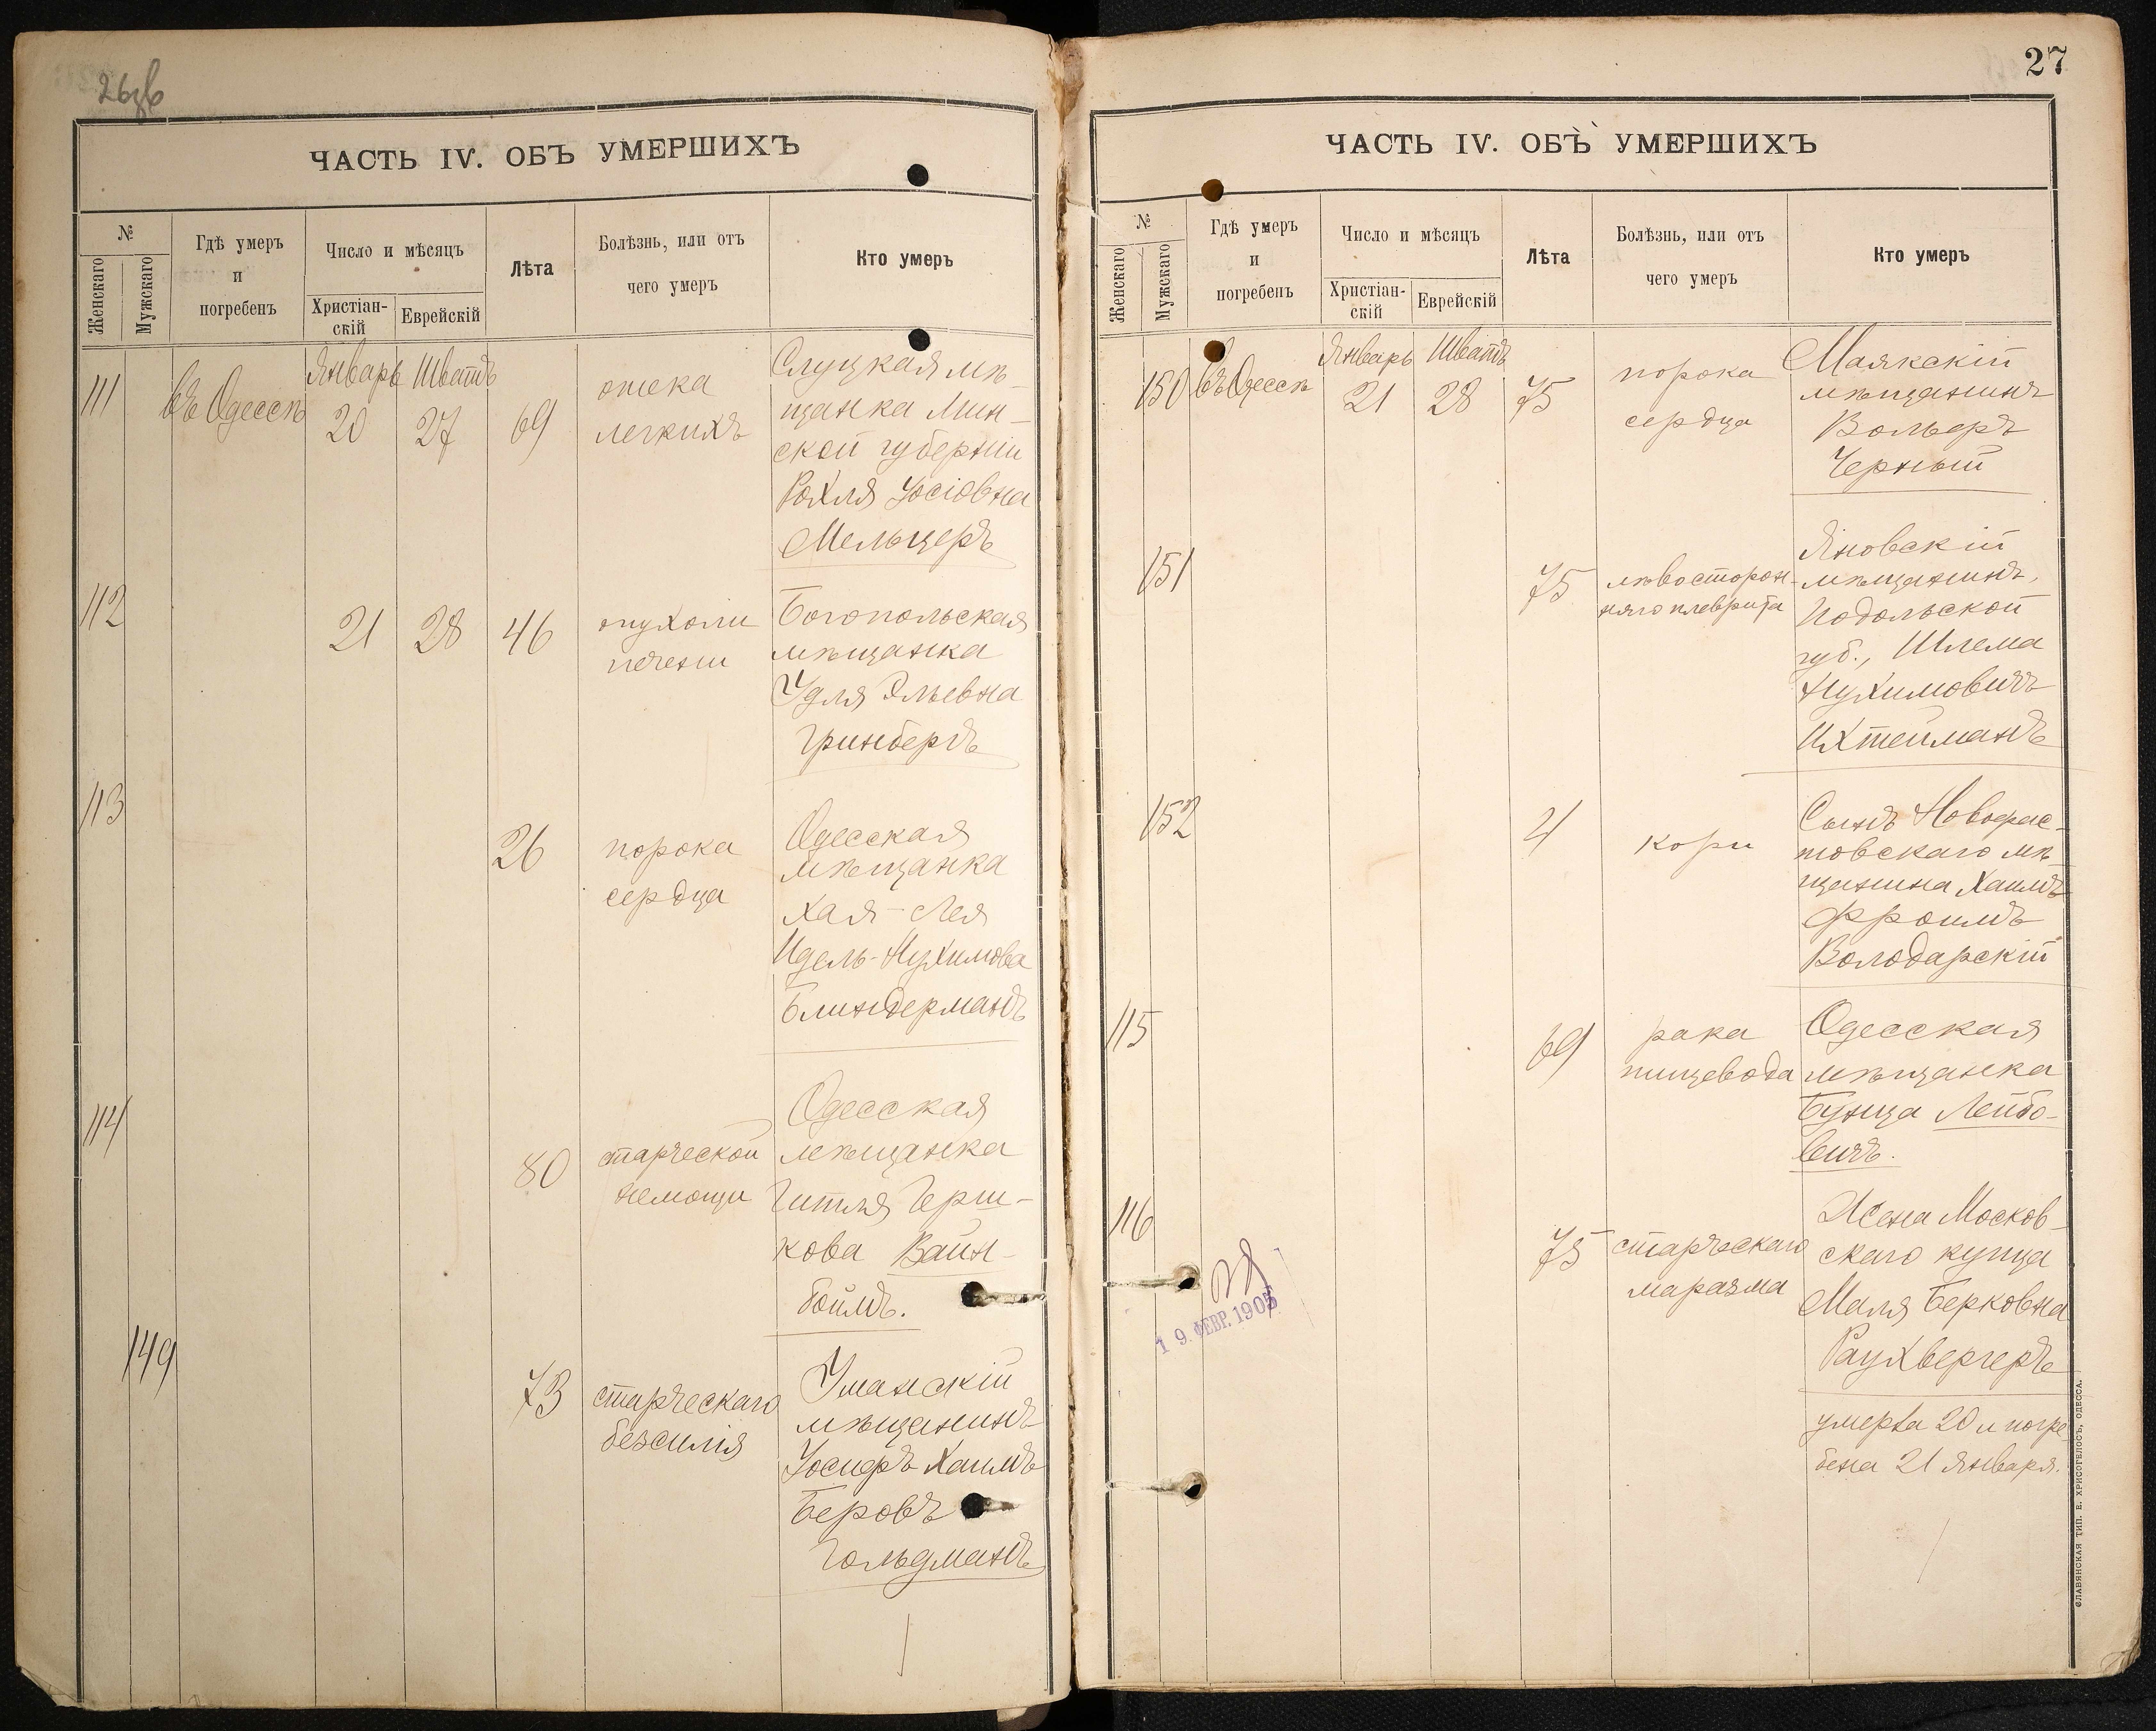 26зв
ЧАСТЬ IV. ОБЪ УМЕРШИХЪ
№
Женскаго
Мужскаго
Гдѣ умеръ
и
погребенъ
Число и мѣсяцъ
Христіан-
скій
Еврейскій
Лѣта
Болѣзнь, или отъ
чего умеръ
Кто умеръ
111
въ Одессѣ
Январь Шватъ
20 27
69
отека
легкихъ
Слуцкая мѣ-
щанка Мин-
ской губерніи
Рохля Іосіовна
Мельцеръ
112
21 28
46
опухоли
печени
Богопольская
мѣщанка
Удля Эльевна
Гринбергъ
113
26
порока
сердца
Одесская
мѣщанка
Хая-Лея
Идель-Нухимова
Блиндерманъ
114
80
старческой
немощи
Одесская
мѣщанка
Гитля Герш-
кова Вайн-
боймъ.
149
73
старческаго
безсилія
Уманскій
мѣщанинъ
Іосифъ Хаимъ
Беровъ
Гольдманъ
27
ЧАСТЬ IV. ОБЪ УМЕРШИХЪ
№
Женскаго
Мужскаго
Гдѣ умеръ
и
погребенъ
Число и мѣсяцъ
Христіан-
скій
Еврейскій
Лѣта
Болѣзнь, или отъ
чего умеръ
Кто умеръ
150
въ Одессѣ
Январь Шватъ
21 28
75
порока
сердца
Маякскій
мѣщанинъ
Вольфъ
Черный
151
75
лѣвосторон-
няго плеврита
Яновскій
мѣщанинъ,
Подольской
губ., Шлема
Нухимовичъ
Ихтейманъ
152
4
кори
Сынъ Новофас-
товскаго мѣ-
щанина Хаимъ
Фроимъ
Володарскій
115
69
рака
пищевода
Одесская
мѣщанка
Бунца Лейбо-
вичъ.
116
75
старческаго
маразма
Жена Москов-
скаго купца
Маля Берковна
Раухвергеръ
умерла 20 и погре-
бена 21 Января.
19. ФЕВР. 1905
СЛАВЯНСКАЯ ТИП. Е. ХРИСОГЕЛОСЪ, ОДЕССА.